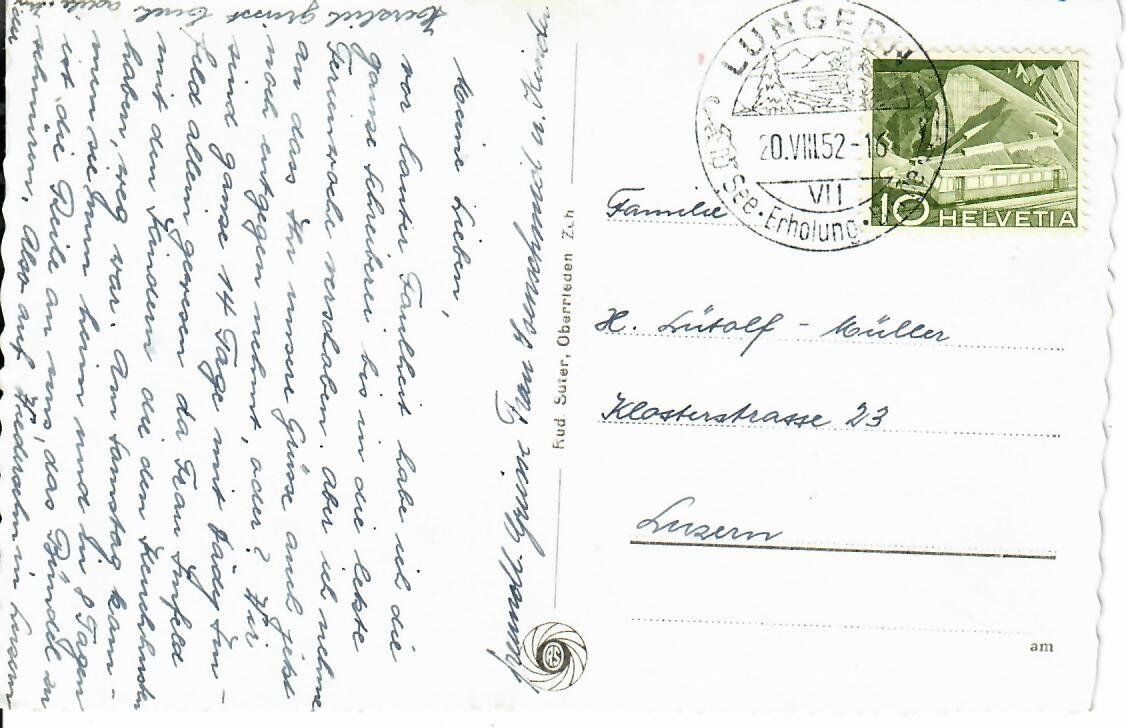 Meine Lieben,
vor lauter Faulheit habe ich die
ganze Schreiberei bis in die letzte
Ferienwoche verschoben. Aber ich nehme
an das Ihr unsere Grüsse auch jetzt
noch entgegen nehmt, oder? Wir
sind ganze 14 Tage mit Imfeld
feld allein gewesen da Frau Imfeld
mit den Kindern die den Keuchhusten
haben, weg war. Am Samstag kom-
men sie heim und in 8 Tagen
ist die Reihe an uns, das Bündel zu
schnüren. Also auf Wiedersehn in Luzern
Herzlich grüsst Euch
Frau u. Kinder
Rud. Suter, Oberrieden Zch
RS
LUNGERN
20.VIII.52-16
VII
See · Erholung ·
10 HELVETIA
Familie
H. Lütolf - Müller
Klosterstrasse 23
Luzern
am